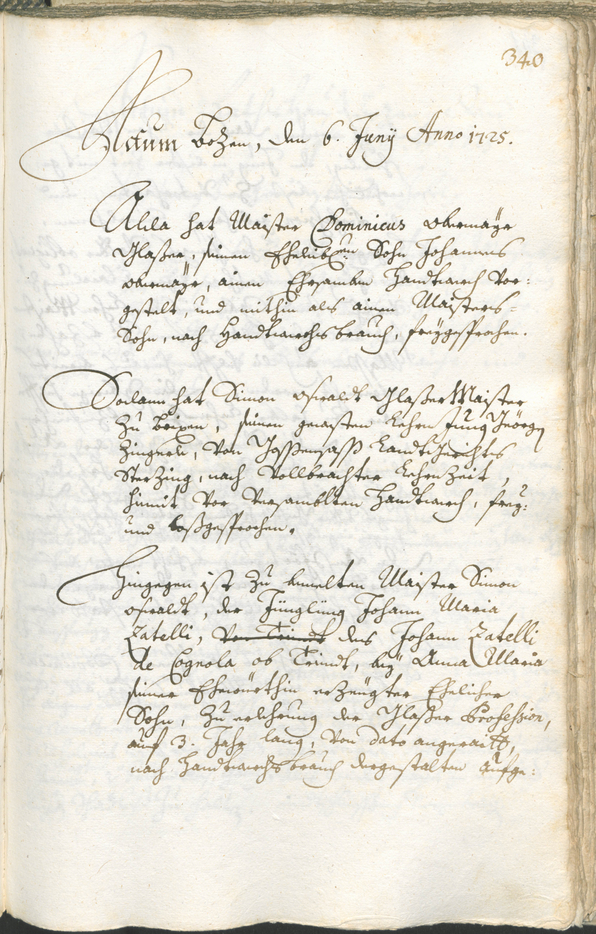 340
Actum Botzen, den 6. Junÿ Anno 1725.
Alda hat Maister Dominicus obermaÿr
Glaßer, seinen Ehelichen Sohn Johannes
obermaÿr, ainem Ehrsamben Handtwerch vor:
gestelt, und mithin als ainen Maisters-
Sohn, nach Handtwerchsbrauch, freÿgesprochen.
Sodann hat Simon Glaßer Maister
zu brixen, seinen gewesten Lehrn Jung Geörg
Zingerle, von Landtgerichts
Sterzing, nach vollbrachter Lehrn Zeit,
hiemit vor versambltem Handtwerch, freÿ:
und loßgesprochen.
Hingegen ist zu ermelten Maister Simon
der Jüngling Johann Maria
Zatelli, von Triendt des Johann Zatelli
de Cognola ob Triendt, beÿ Anna Maria
seiner Ehewürthin erzeugter Ehelicher
Sohn, zu erlehrnung der Glaßer Profession,
auf 3. Jahr lang, von dato angeraith,
nach Handtwerchsbrauch dergestalten aufge: